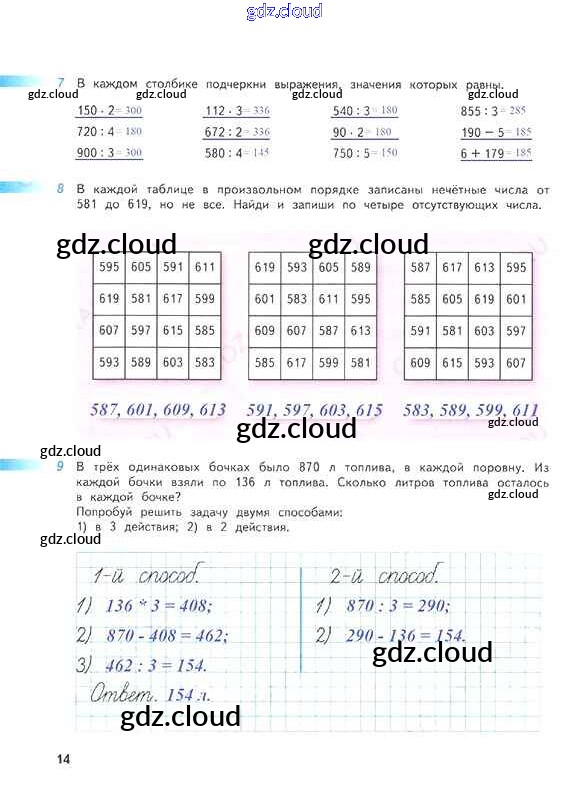 gdz.cloud
7 В каждом столбике подчеркни выражения, значения которых равны.
gdz.cloud gdz.cloud gdz.cloud gdz.cloud
150 · 2 = 300 112 · 3 = 336 540 : 3 = 180 855 : 3 = 285
720 : 4 = 180 672 : 2 = 336 90 · 2 = 180 190 − 5 = 185
900 : 3 = 300 580 : 4 = 145 750 : 5 = 150 6 + 179 = 185
8 В каждой таблице в произвольном порядке записаны нечётные числа от
581 до 619, но не все. Найди и запиши по четыре отсутствующих числа.
gdz.cloud gdz.cloud gdz.cloud
595 605 591 611 619 593 605 589 587 617 613 595
619 581 617 599 601 583 611 595 585 605 619 601
607 597 615 585 609 607 587 613 591 581 603 597
593 589 603 583 585 617 599 581 609 615 593 607
587, 601, 609, 613 591, 597, 603, 615 583, 589, 599, 611
gdz.cloud gdz.cloud
gdz.cloud
9 В трёх одинаковых бочках было 870 л топлива, в каждой поровну. Из
каждой бочки взяли по 136 л топлива. Сколько литров топлива осталось
в каждой бочке?
gdz.cloud
Попробуй решить задачу двумя способами:
1) в 3 действия; 2) в 2 действия.
gdz.cloud
1-й способ. 2-й способ.
1) 136 * 3 = 408; 1) 870 : 3 = 290;
2) 870 - 408 = 462; 2) 290 - 136 = 154.
gdz.cloud
3) 462 : 3 = 154.
Ответ. 154 л.
gdz.cloud
14
gdz.cloud